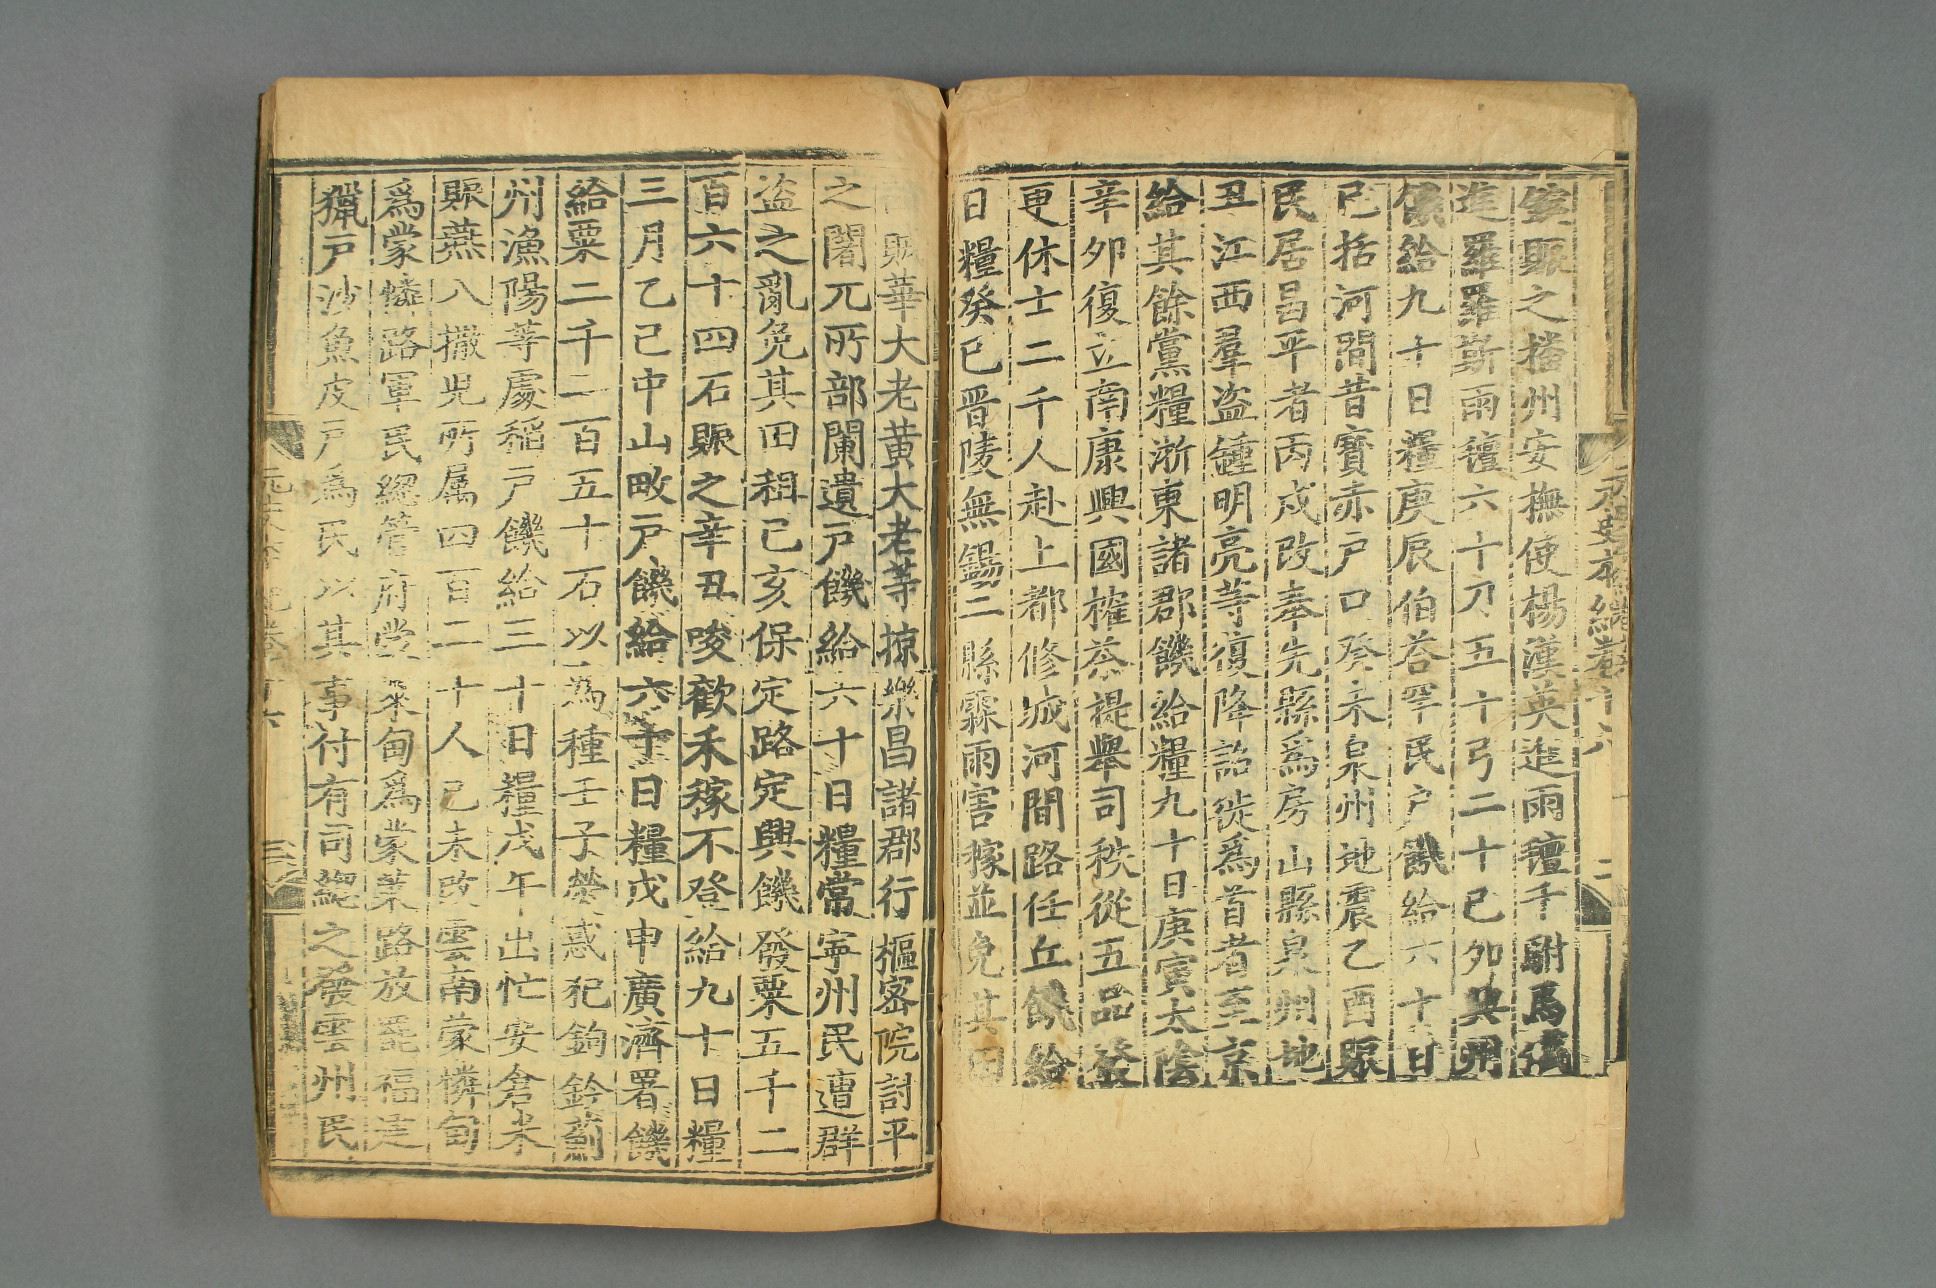 蠻賑之播州安撫使楊漢英進雨氊千駙馬
進羅羅斯雨氊六十刀五十弓二十己夘興州
饑給九十日糧庚辰伯荅罕民户饑給六十日
已括河間昔寶赤户口癸未泉州地震乙酉賑
民居昌平者丙戌改奉先縣爲房山縣泉州地
丑江西羣盗鍾明亮等復降詔徙爲首者至京
給其餘黨糧浙東諸郡饑給糧九十日庚寅太陰
辛夘復立南康興國榷茶提舉司秩從五品發
更休士二千人赴上都修城河間路任丘饑給
日糧癸巳晋陵無錫二縣霖雨害稼並免其田
元史本紀卷十六
二
賊華大老黄大老等掠樂昌諸郡行樞密院討平
之闍兀所部闌遺户饑給六十日糧常寧州民遭群
盗之亂免其田租己亥保定路定興饑發粟五千二
百六十四石賑之辛丑唆歡禾稼不登給九十日糧
三月乙己中山畋户饑給六十日糧戊申廣濟署饑
給粟二千二百五十石以爲種壬子熒惑犯鉤鈐薊
州漁陽等處稻户饑給三十日糧戊午出忙安倉米
賑燕八撒児所属四百二十人己未改雲南蒙憐甸
爲蒙憐路軍民緫管府蒙萊甸爲蒙萊路放罷福建
獵户沙魚皮户爲民以其事付有司緫之發雲州民
元史本紀卷十六
三